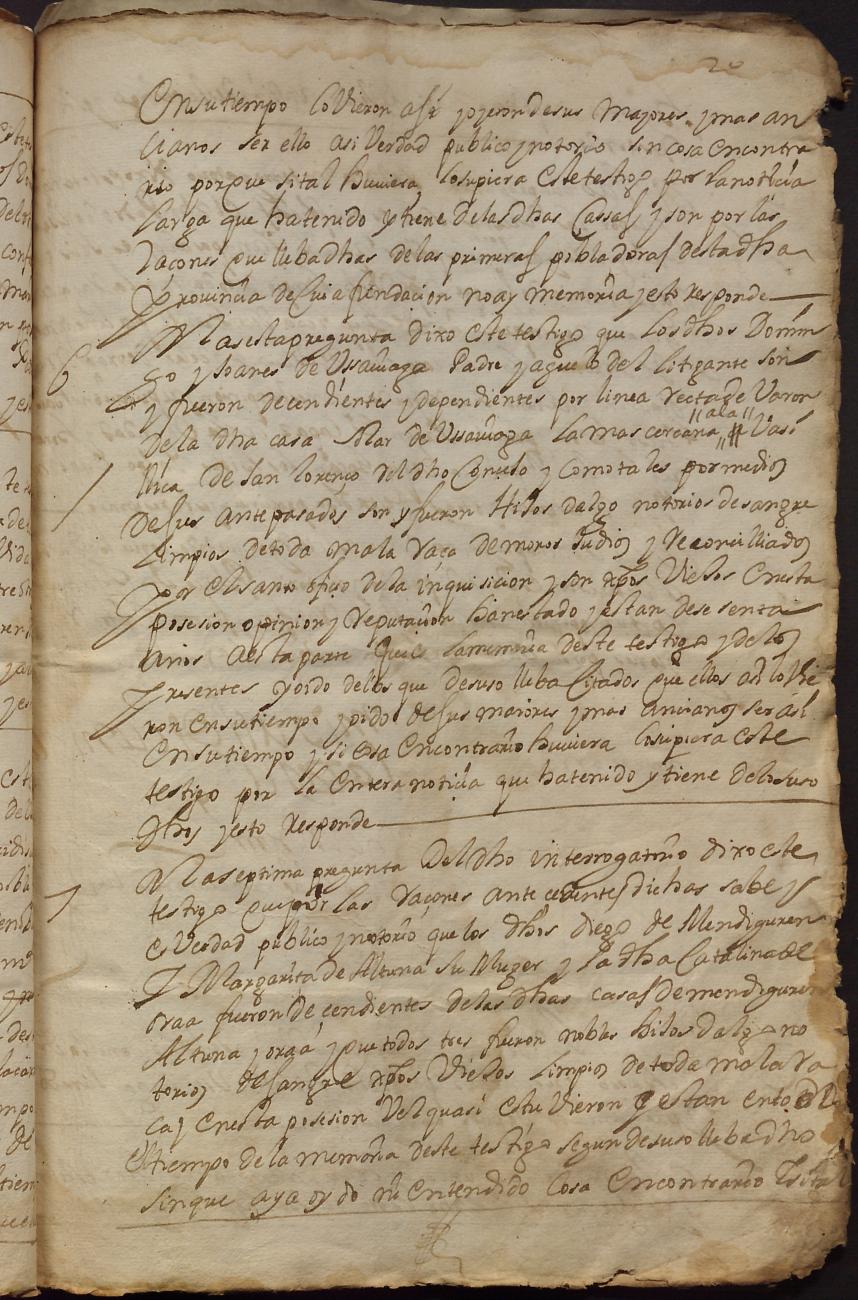 20
En su tiempo lo Vieron assi y oyeron de sus mayores y mas an
cianos ser ello asi Verdad publico y notorio sin cosa en contra
rio porque si tal huuiera lo supiera este testigo por la noticia
larga que ha tenido y tiene de las dhas Cassas y son por las
raçones que lleba dhas de las primeras pobladoras desta dha
Prouincia de Cuia fundacion no ay memoria y esto responde
6
A la sesta pregunta dixo este testigo que los dhos Domin
go y Joanes de Ussauiaga Padre y aguelo del litigante son
y fueron decendientes y dependientes por linea recta de Varon
de la dha casa solar de Ussauiaga la mas cercana "a la" Vasi
lica de San Lorenço del dho Conçejo y como tales por medio
de sus antepasados son y fueron Hijos dalgo notorios de sangre
Limpios de toda mala raça de moros Judios y reconciliados
por el santo ofiçio de la inquisicion y son xpos Viejos en esta
posesion opinion y reputacion han estado y estan de sesenta
años a esta parte que es la memoria deste testigo y de los
presentes y oido de los que de suso lleba Citados que ellos asi lo Vie
ron en su tiempo y oido de sus maiores y mas ancianos ser asi
en su tiempo y si cosa en contrario huuiera lo supiera este
testigo por la entera noticia que ha tenido y tiene de lo suso
dho y esto responde
7
A la septima pregunta del dho interrogatorio dixo este
testigo que por las raçones antecedentes dichas sabe y
es Verdad publico y notorio que los dhos diego de Mendiguren
y Margarita de Altuna su Muger y la dha Catalina de
oraa fueron decendientes de las dhas casas de mendiguren
Altuna y oraa y que todos tres fueron nobles hijos dalgo no
torios de sangre xpos Viejos limpios de toda mala ra
ca y en esta posesion Vel quasi estuVieron y estan en todo
el tiempo de la memoria deste testigo segun de suso lleba dho
sin que aya oydo ni entendido cosa en contrario y si tal